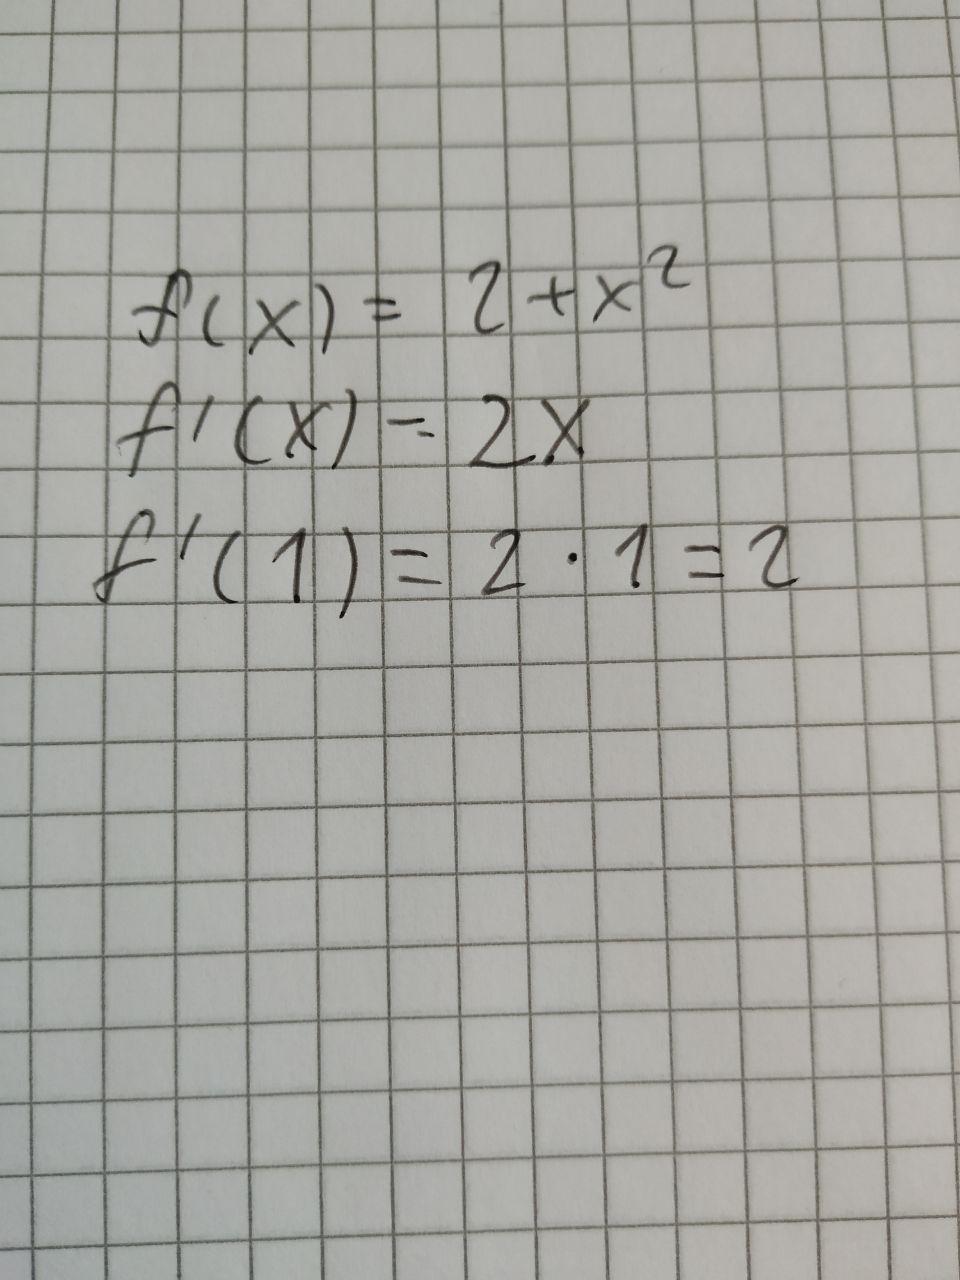 f(x) = 2+x²
f'(x) = 2x
f'(1) = 2 · 1 = 2